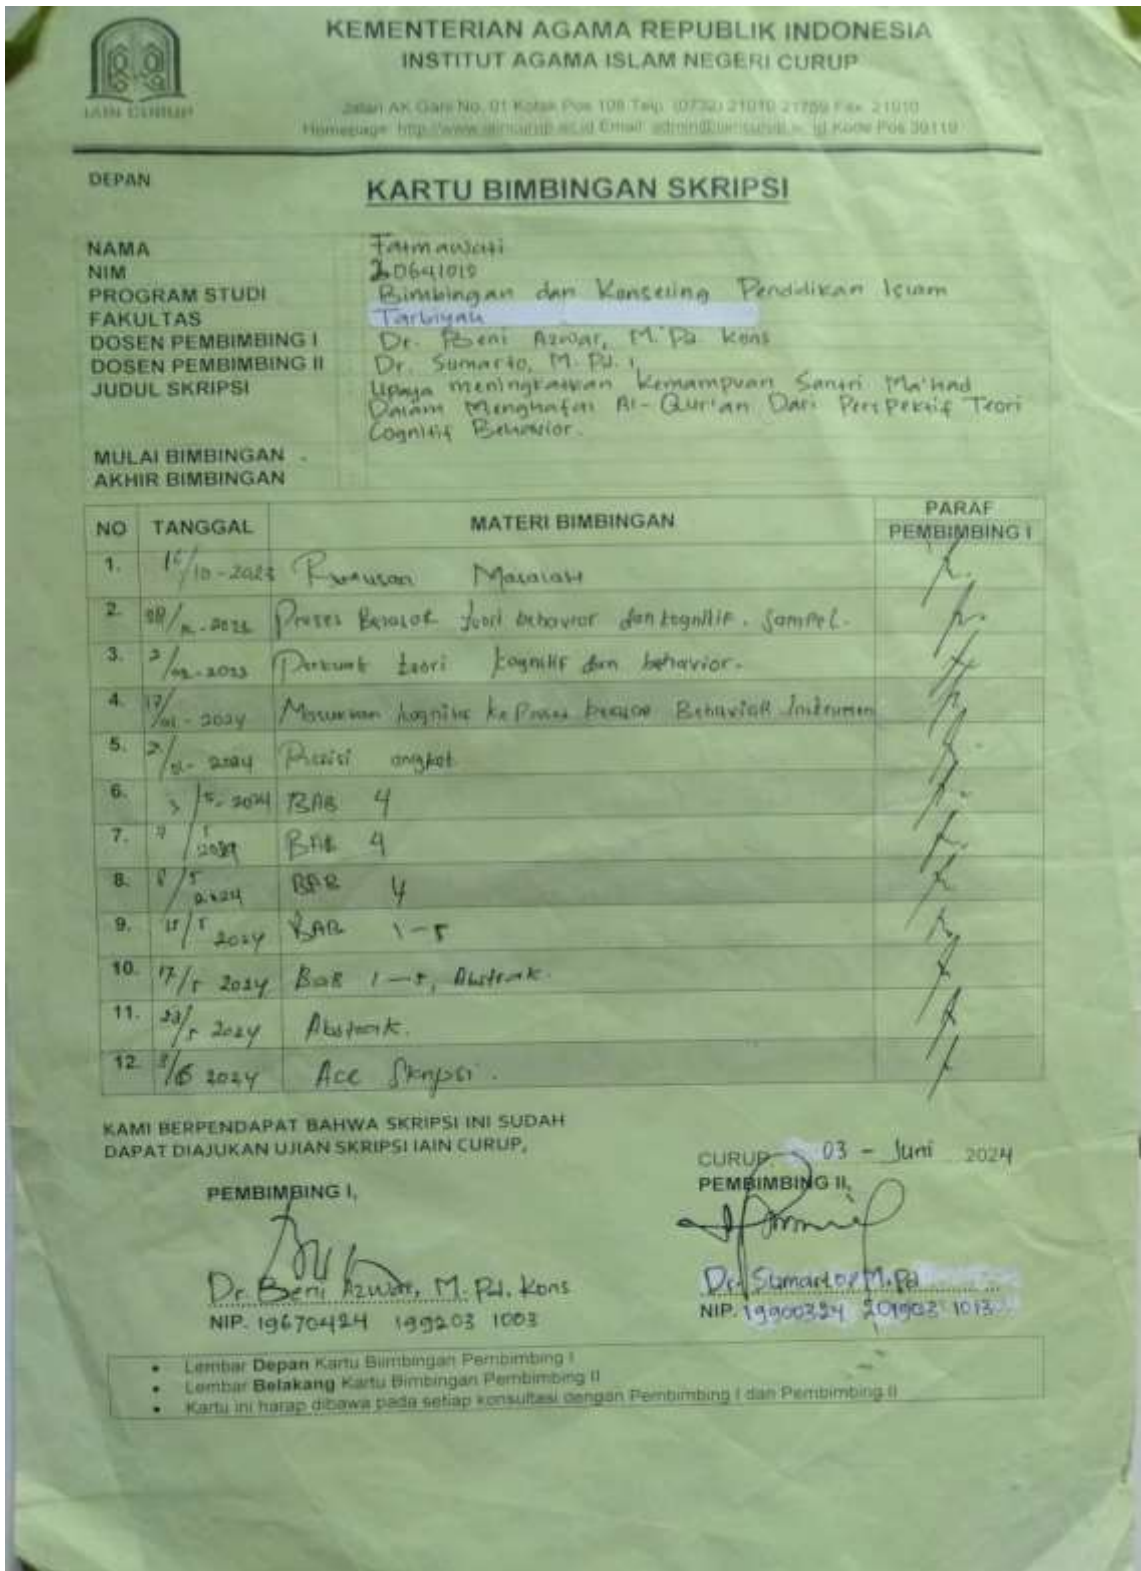 KEMENTERIAN AGAMA REPUBLIK INDONESIA
INSTITUT AGAMA ISLAM NEGERI CURUP
IAIN CURUP
Jalan AK Gani No. 01 Kotak Pos 108 Telp. (0732) 21010 21759 Fax. 21010
Homepage http://www.iaincurup.ac.id Email admin@iaincurup.ac.id Kode Pos 39119
DEPAN
KARTU BIMBINGAN SKRIPSI
NAMA Fatmawati
NIM 20641019
PROGRAM STUDI Bimbingan dan Konseling Pendidikan Islam
FAKULTAS Tarbiyah
DOSEN PEMBIMBING I Dr. Beni Azwar, M.Pd Kons
DOSEN PEMBIMBING II Dr. Sumarto, M.Pd. I
JUDUL SKRIPSI Upaya meningkatkan Kemampuan Santri Ma'had
Dalam Menghafal Al-Qur'an Dari Perspektif Teori
Cognitif Behavior.
MULAI BIMBINGAN
AKHIR BIMBINGAN
NO TANGGAL MATERI BIMBINGAN PARAF PEMBIMBING I
1. Masalah
2. Proses teori behavior dan kognitif. Sampel.
3. Perkuat teori kognitif dan behavior.
4. 17/01-2024 kognitif ke Proses Behavior Instrumen
5. Revisi angket
6. 3/5-2024 BAB 4
7. BAB 4
8. 8/5 2024 BAB 4
9. 15/5 2024 BAB 1-5
10. 17/5 2024 BAB 1-5, Abstrak.
11. 23/5 2024 Abstrak.
12. 3/6 2024 Acc Skripsi.
KAMI BERPENDAPAT BAHWA SKRIPSI INI SUDAH
DAPAT DIAJUKAN UJIAN SKRIPSI IAIN CURUP,
CURUP, 03 - Juni 2024
PEMBIMBING I, PEMBIMBING II,
Dr. Beni Azwar, M.Pd. Kons Dr. Sumarto, M.Pd
NIP. 19670424 199203 1003 NIP. 19900324 201903 1013
• Lembar Depan Kartu Bimbingan Pembimbing I
• Lembar Belakang Kartu Bimbingan Pembimbing II
• Kartu ini harap dibawa pada setiap konsultasi dengan Pembimbing I dan Pembimbing II